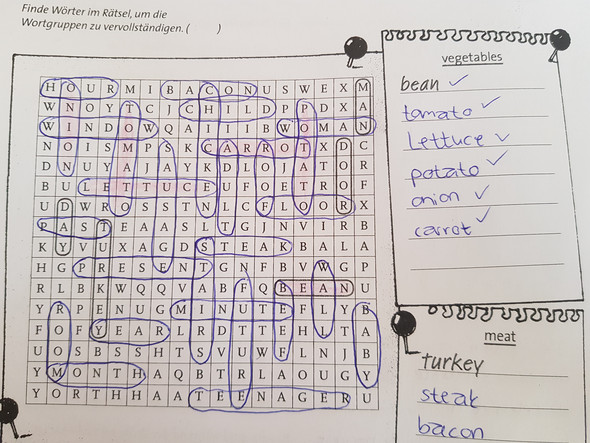 Finde Wörter im Rätsel, um die
Wortgruppen zu vervollständigen. ( )
H O U R M I B A C O N U S W E X M
W N O Y T C J C H I L D P P D X A
W I N D O W Q A I I I B W O M A N
N O I S M P S K C A R R O T X D C
D N U Y A J A Y K D L O J A T O R
B U L E T T U C E U F O E T R O F
U D W R O S S T N L C F L O O R X
P A S T E A A S L T G J N V I R B
K Y V U X A G D S T E A K B A L A
H G P R E S E N T G N F B V W G P
R L B K W Q Q V A B F Q B E A N U
Y R P E N U G M I N U T E F L Y B
F O F Y E A R L R D T T E H L T A
U O S B S S H T S V U W F L N J B
Y M O N T H A Q B T R L A O U G Y
Y O R T H H A A T E E N A G E R U
vegetables
bean
tomato
Lettuce
potato
onion
carrot
meat
turkey
steak
bacon